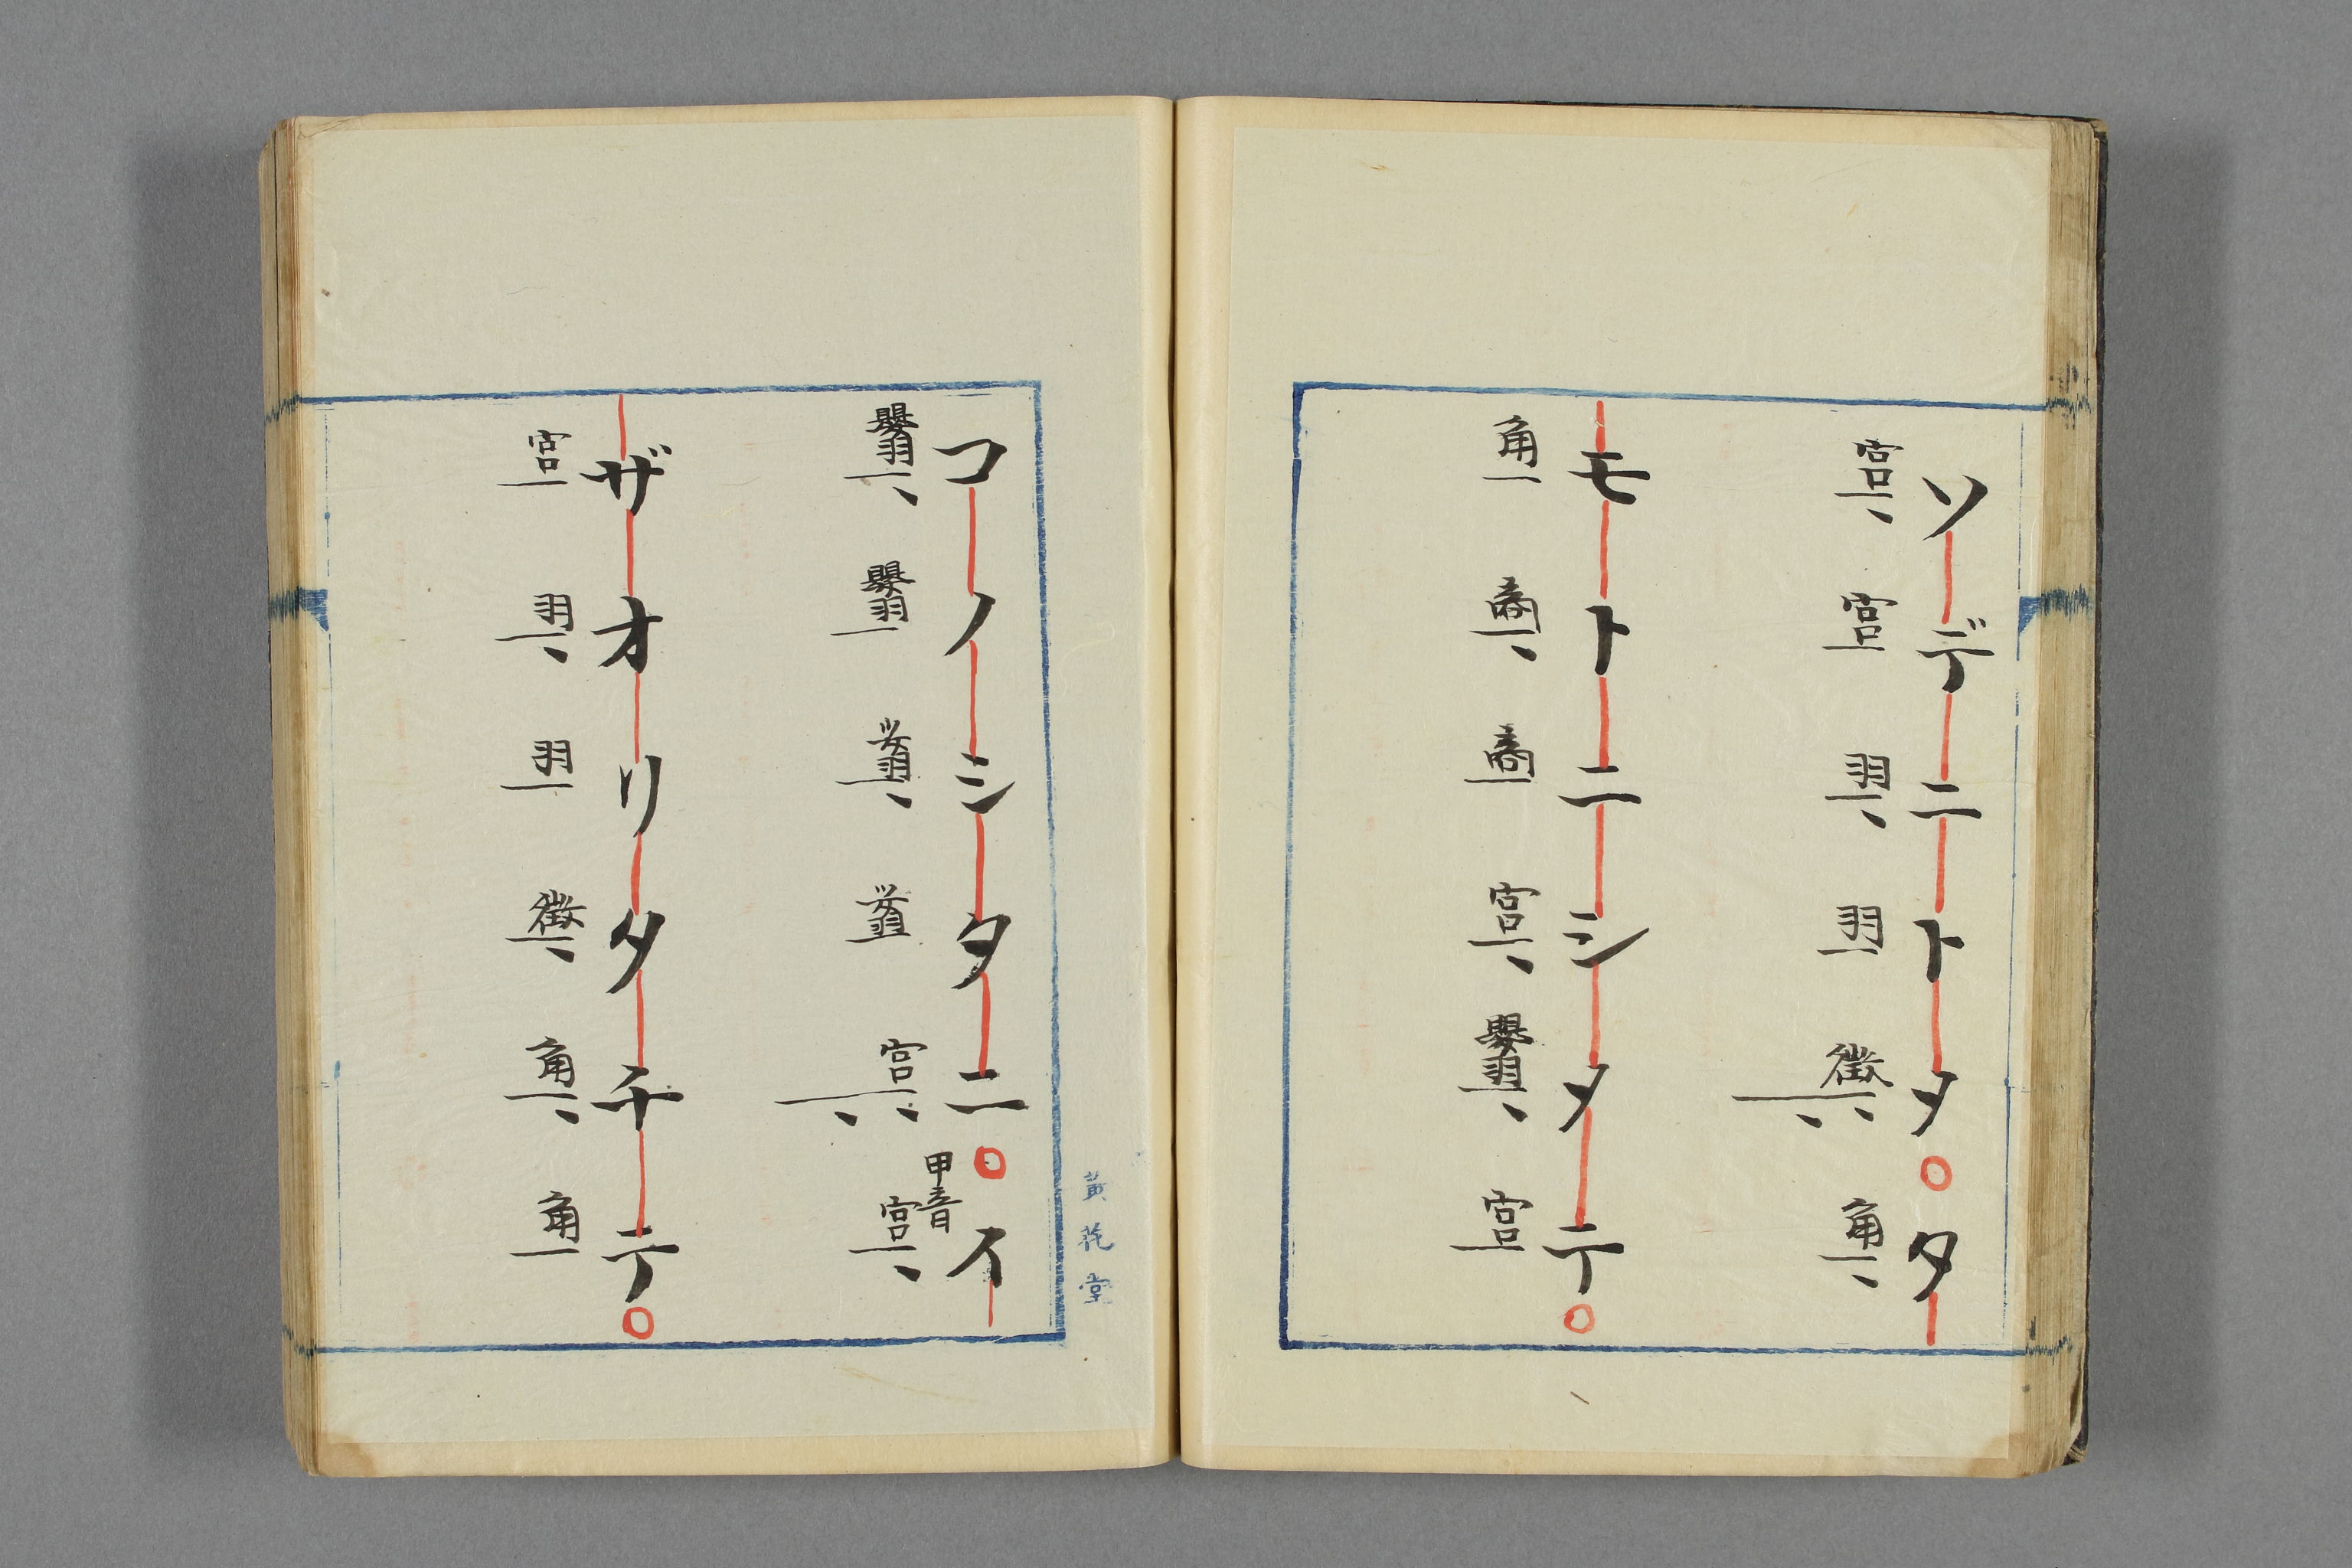 ソデニトメ○タ
宮宮羽羽徴角
モトニシメテ○
角商商宮嬰羽宮
コノシタニ○イ
嬰羽嬰羽宮
甲音
宮
ザオリタチテ○
宮羽羽徴角角
黄花堂